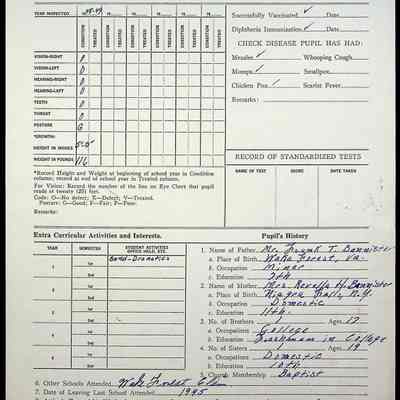 YEAR INSPECTED 19 48-49 19 19 19 19 19
CONDITION TREATED CONDITION TREATED CONDITION TREATED CONDITION TREATED CONDITION TREATED CONDITION TREATED
VISION-RIGHT 0
VISION-LEFT 0
HEARING-RIGHT 0
HEARING-LEFT 0
TEETH 0
THROAT 0
POSTURE G
*GROWTH:
HEIGHT IN INCHES 5'0"
WEIGHT IN POUNDS 116
*Record Height and Weight at beginning of school year in Condition
column; record at end of school year in Treated column.
For Vision: Record the number of the line on Eye Chart that pupil
reads at twenty (20) feet.
Code: O—No defect; X—Defect; V—Treated.
Posture: G—Good; F—Fair; P—Poor.
Remarks:
Successfully Vaccinated ✓ Date
Diphtheria Immunization ✓ Date
CHECK DISEASE PUPIL HAS HAD:
Measles ✓ Whooping Cough
Mumps ✓ Smallpox
Chicken Pox ✓ Scarlet Fever
Remarks:
RECORD OF STANDARDIZED TESTS
NAME OF TEST SCORE DATE TAKEN
Extra Curricular Activities and Interests.
YEAR SEMESTER STUDENT ACTIVITIES OFFICE HELD, ETC.
1 1st Band-Dramatics
2nd
2 1st
2nd
3 1st
2nd
4 1st
2nd
Pupil's History
1. Name of Father Mr. Frank T. Bannister
a. Place of Birth Wake Forest, Va.
b. Occupation Miner
c. Education 7th
2. Name of Mother Mrs. H. Bannister
a. Place of Birth Niagra Falls, N.Y.
b. Occupation Domestic
c. Education 11th
3. No. of Brothers 1 Ages 17
a. Occupations College
b. Education Freshman in College
4. No. of Sisters 1 Ages 19
a. Occupations Domestic
b. Education 10th
5. Church Membership Baptist
6. Other Schools Attended Wake Forest Elm
7. Date of Leaving Last School Attended 1945